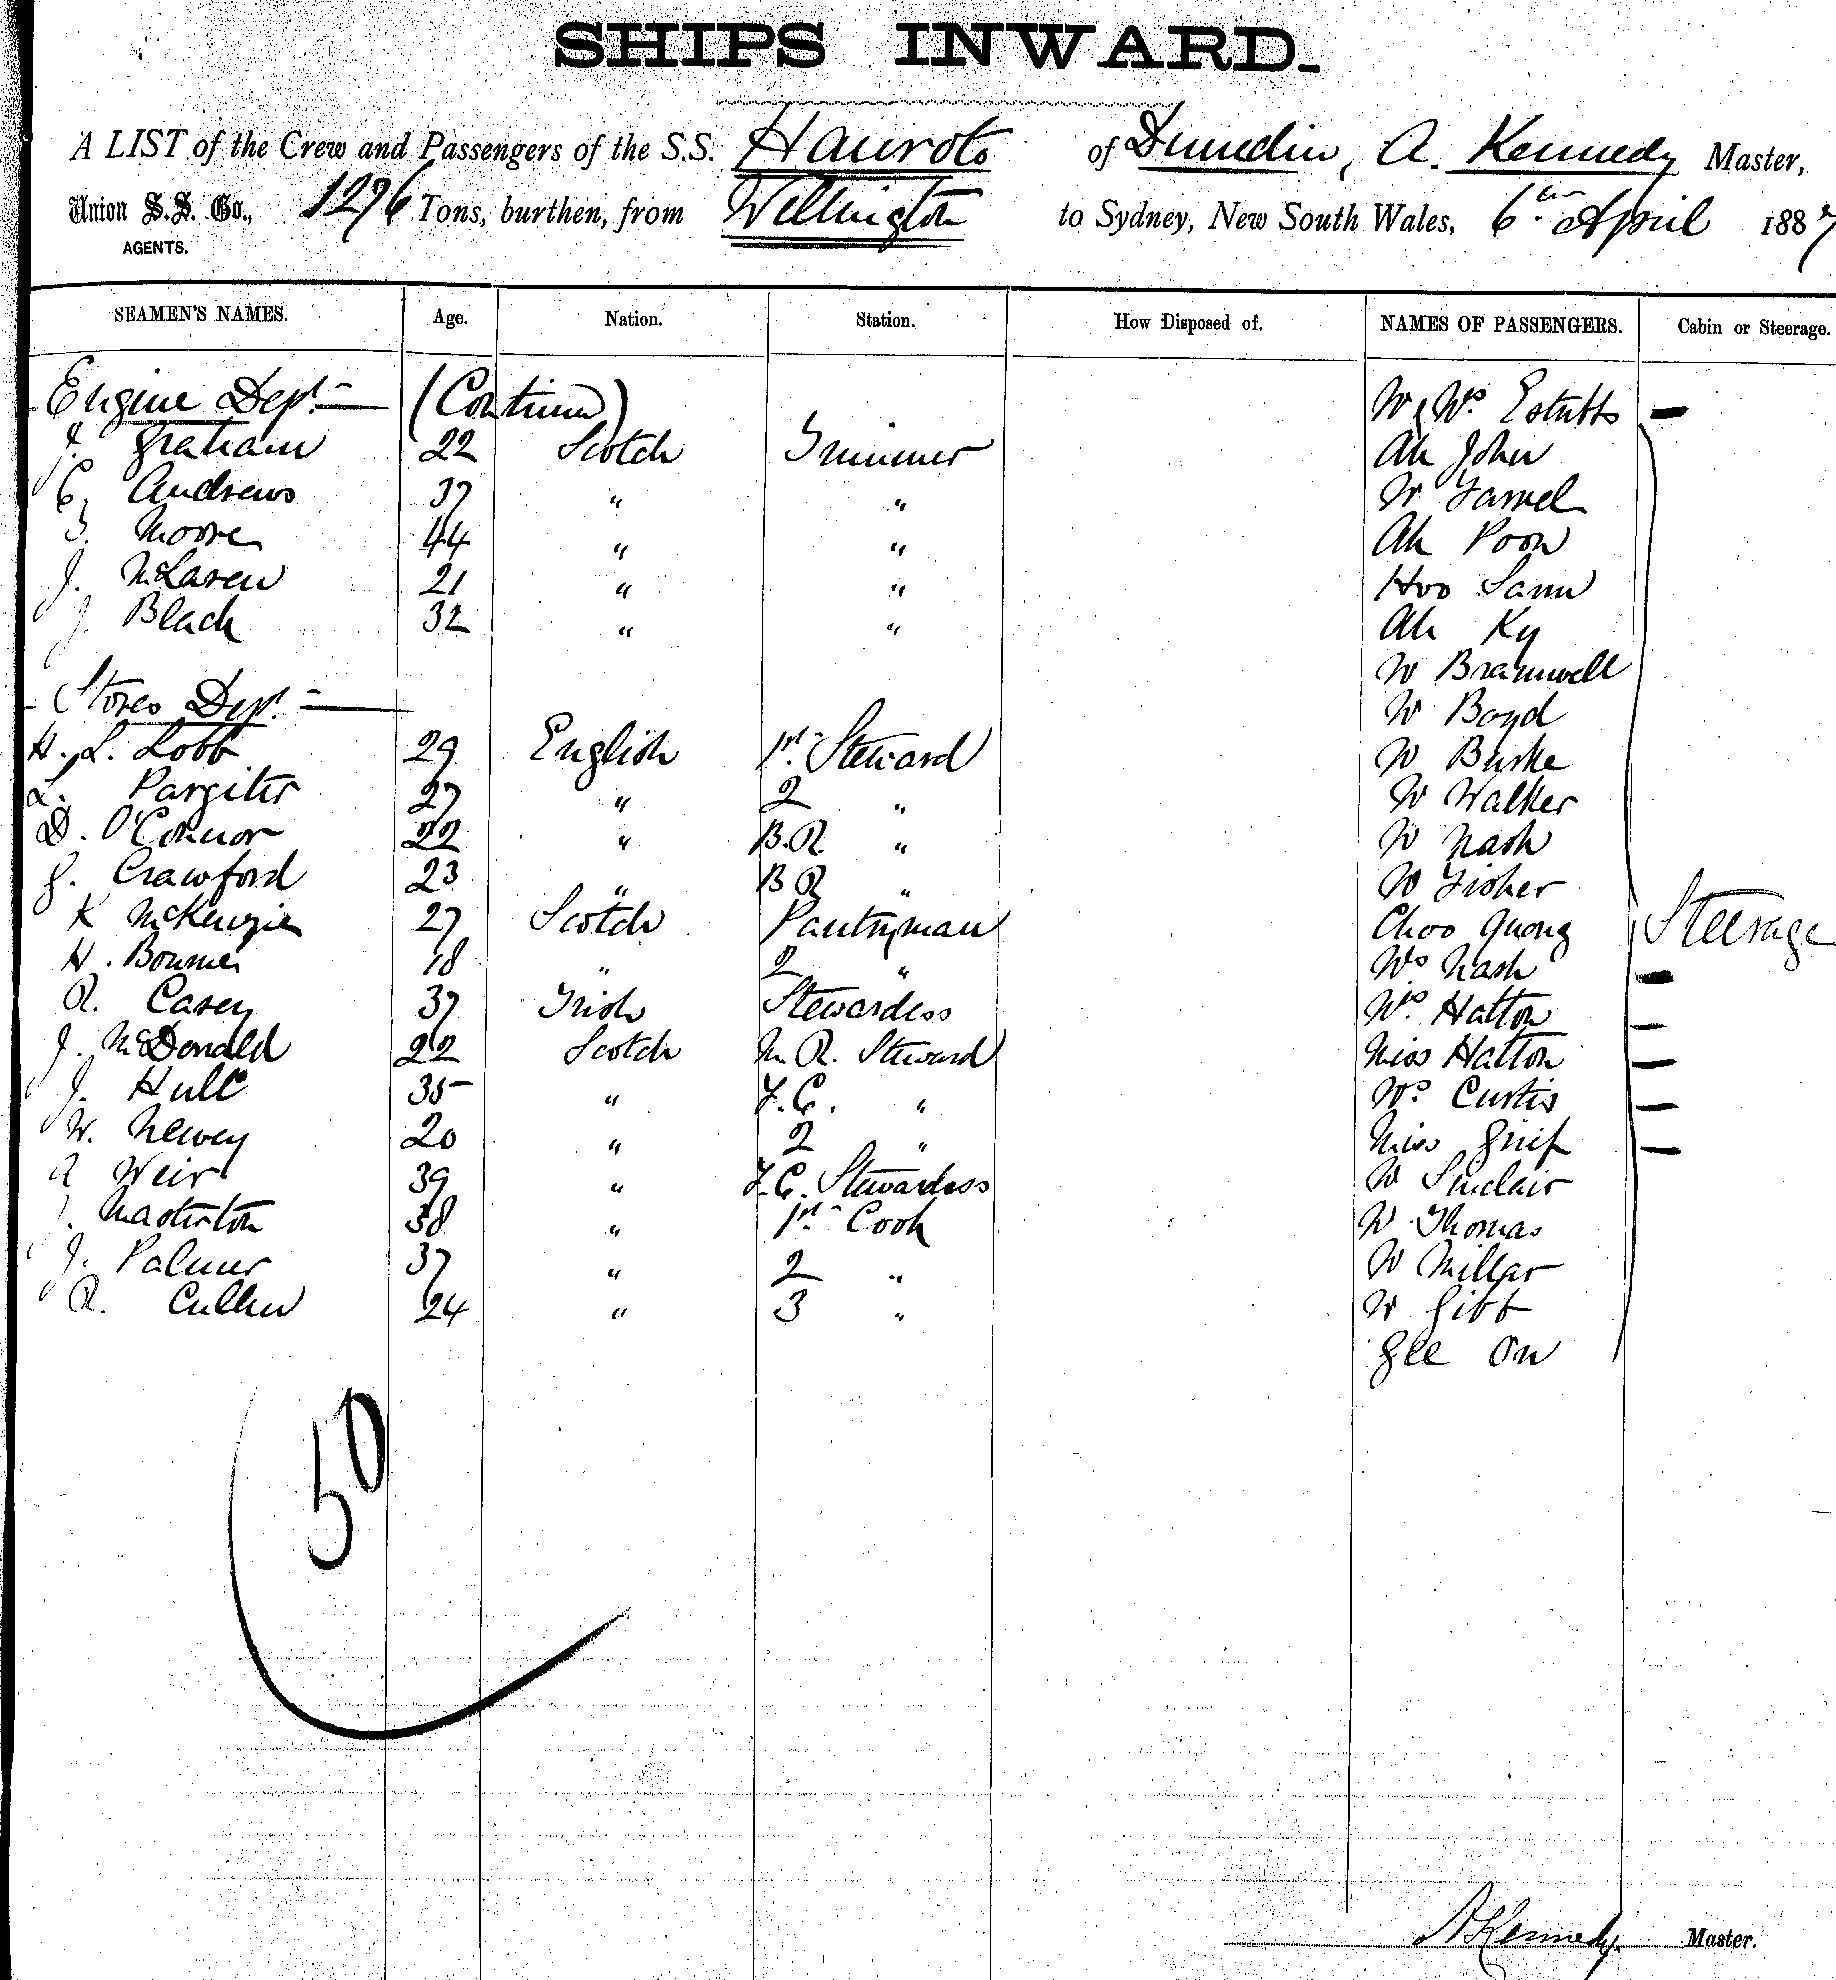 SHIPS INWARD.
A LIST of the Crew and Passengers of the S.S. Hauroto of Dunedin, A. Kennedy Master,
Union S.S. Co., 1276 Tons, burthen, from Wellington to Sydney, New South Wales, 6th April 1887
AGENTS.
SEAMEN'S NAMES. Age. Nation. Station. How Disposed of. NAMES OF PASSENGERS. Cabin or Steerage.
Engine Dept (Continued) M & Mrs Estutts —
J. Graham 22 Scotch Trimmer Ah John
C. Andrews 37 " " Mr Farrel
T. Moore 44 " " Ah Poon
J. McLaren 21 " " Hoo Sann
J. Black 32 " " Ah Ky
Mr Bramwell
Stores Dept. — Mr Boyd
H. L. Lobb 29 English 1st Steward Mr Burke
L. Pargiter 27 " 2 " Mr Walker
D. O'Connor 22 " B.R. " Mr Nash
J. Crawford 23 " B R " Mr Fisher
K McKenzie 27 Scotch Pantryman Choo Quong Steerage
H. Bourner 18 " 2 " Mrs Nash —
R. Casey 37 Irish Stewardess Mrs Hatton —
J. McDonald 22 Scotch M. R. Steward Miss Hatton —
J. Hull 35 " F.C. " Mrs Curtis —
W. Newey 20 " 2 " Miss Greif —
A Weir 39 " F.C. Stewardess Mr Sinclair
Masterton 38 " 1st Cook Mr Thomas
J. Palmer 37 " 2 " Mr Millar
R. Cullen 24 " 3 " Mr Gibb
Gee On
50
A Kennedy. Master.